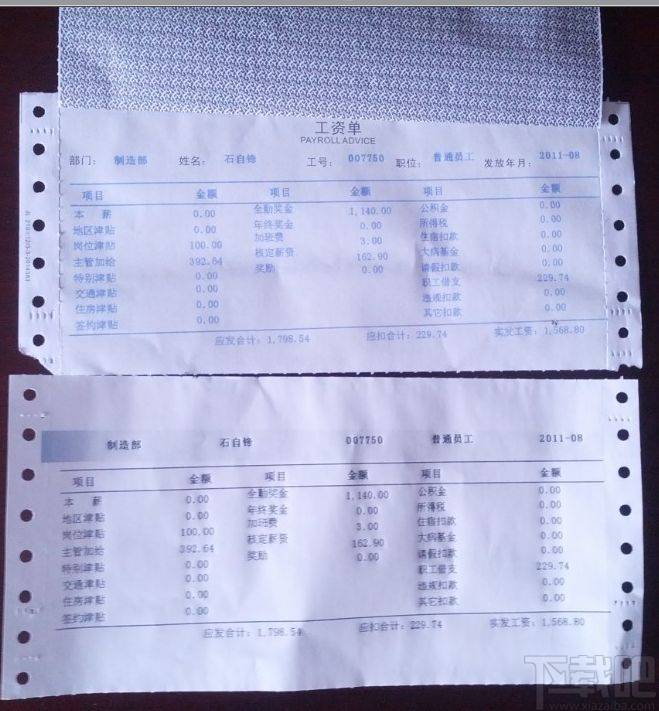 工资单
PAYROLL ADVICE
部门： 制造部 姓名： 石自锋 工号： 007750 职位： 普通员工 发放年月： 2011-08
项目 金额 项目 金额 项目 金额
本 薪 0.00 全勤奖金 1,140.00 公积金 0.00
地区津贴 0.00 年终奖金 0.00 所得税 0.00
岗位津贴 100.00 加班费 3.00 住宿扣款 0.00
主管加给 392.64 核定薪资 162.90 大病基金 0.00
特别津贴 0.00 奖励 0.00 请假扣款 0.00
交通津贴 0.00 职工借支 229.74
住房津贴 0.00 违规扣款 0.00
签约津贴 0.00 其它扣款 0.00
应发合计：1,798.54 应扣合计：229.74 实发工资：1,568.80
制造部 石自锋 007750 普通员工 2011-08
项目 金额 项目 金额 项目 金额
本 薪 0.00 全勤奖金 1,140.00 公积金 0.00
地区津贴 0.00 年终奖金 0.00 所得税 0.00
岗位津贴 100.00 加班费 3.00 住宿扣款 0.00
主管加给 392.64 核定薪资 162.90 大病基金 0.00
特别津贴 0.00 奖励 0.00 请假扣款 0.00
交通津贴 0.00 职工借支 229.74
住房津贴 0.00 违规扣款 0.00
签约津贴 0.00 其它扣款 0.00
应发合计：1,798.54 应扣合计：229.74 实发工资：1,568.80
下载吧
www.xiazaiba.com